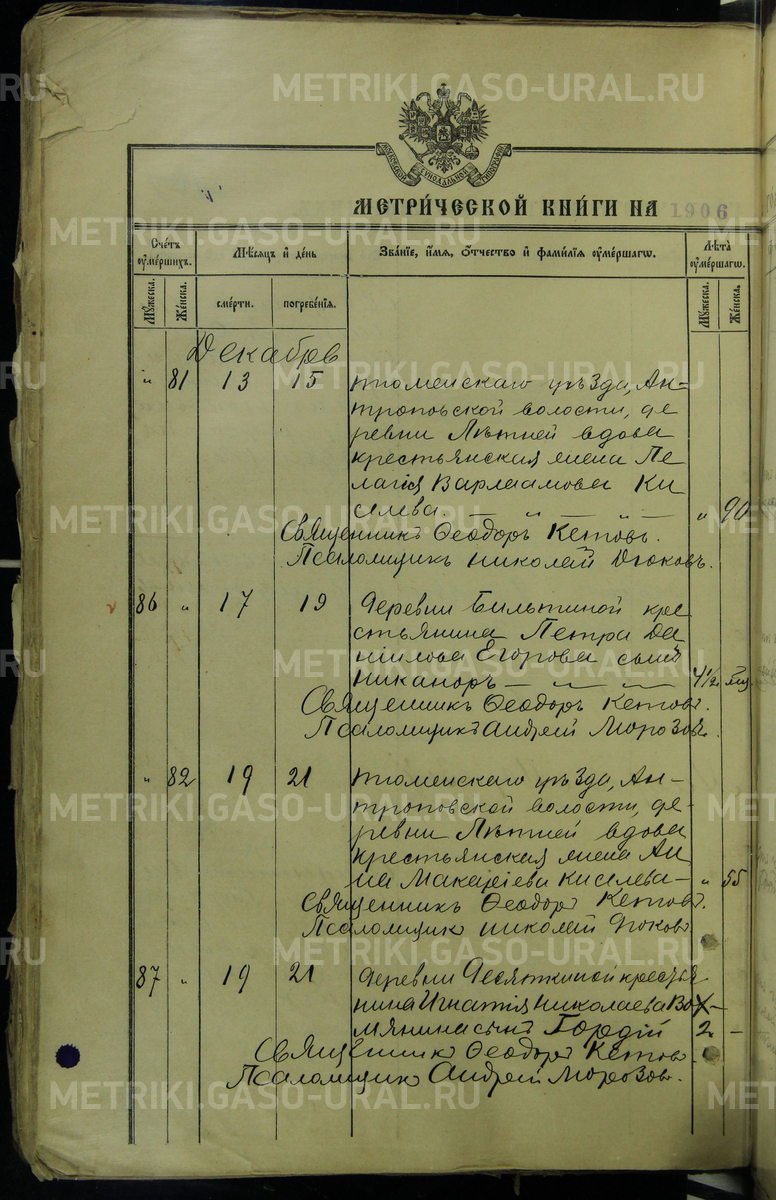 METRIKI.GASO-URAL.RU
МЕТРИ́ЧЕСКОЙ КНИ́ГИ НА 1906
Сче́тъ ᲂу҆ме́ршихъ.
Мѣ́сяцъ и҆ де́нь
Зва́нїе, и҆́мя, ѻ҆́тчество и҆ фами́лїя ᲂу҆ме́ршагѡ.
Лѣ́та ᲂу҆ме́ршагѡ.
Мꙋ́жеска.
Же́нска.
сме́рти.
погребе́нїя.
Мꙋ́жеска.
Же́нска.
Декабрь
" 81 13 15 Тюменскаго уѣзда, Ан-
троповской волости, де
ревни Лѣтней вдова
крестьянская жена Пе
лагія Варлаамова Ки
селева. — " — " — " 90
Священникъ Ѳеодоръ Кетовъ.
Псаломщикъ Николай Дьяковъ.
86 " 17 19 Деревни крес
стьянина Петра Да
ніилова Егорова сынъ
Никаноръ — — — 4½ мѣс.
Священникъ Ѳеодоръ Кетовъ.
Псаломщикъ Андрей Морозовъ.
" 82 19 21 Тюменскаго уѣзда, Ан-
троповской волости, де-
ревни Лѣтней вдова
крестьянская жена Ан
на Макаріева Киселева — " 55
Священникъ Ѳеодоръ Кетовъ.
Псаломщикъ Николай Дьяковъ
87 " 19 21 Деревни Десяткиной крестья
нина Игнатія Николаева Вох-
мянина сынъ Гордій 2 —
Священникъ Ѳеодоръ Кетовъ.
Псаломщикъ Андрей Морозовъ.